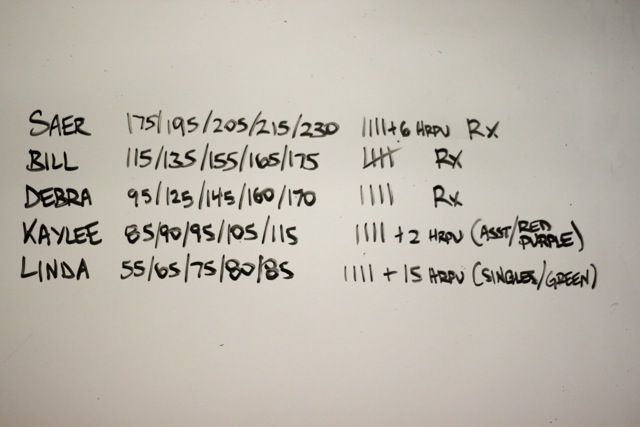 SAER 175/195/205/215/230 IIII+6 HRPU RX
BILL 115/135/155/165/175 IIII RX
DEBRA 95/125/145/160/170 IIII RX
KAYLEE 85/90/95/105/115 IIII +2 HRPU (ASST/RED PURPLE)
LINDA 55/65/75/80/85 IIII + 15 HRPU (SINGLES/GREEN)